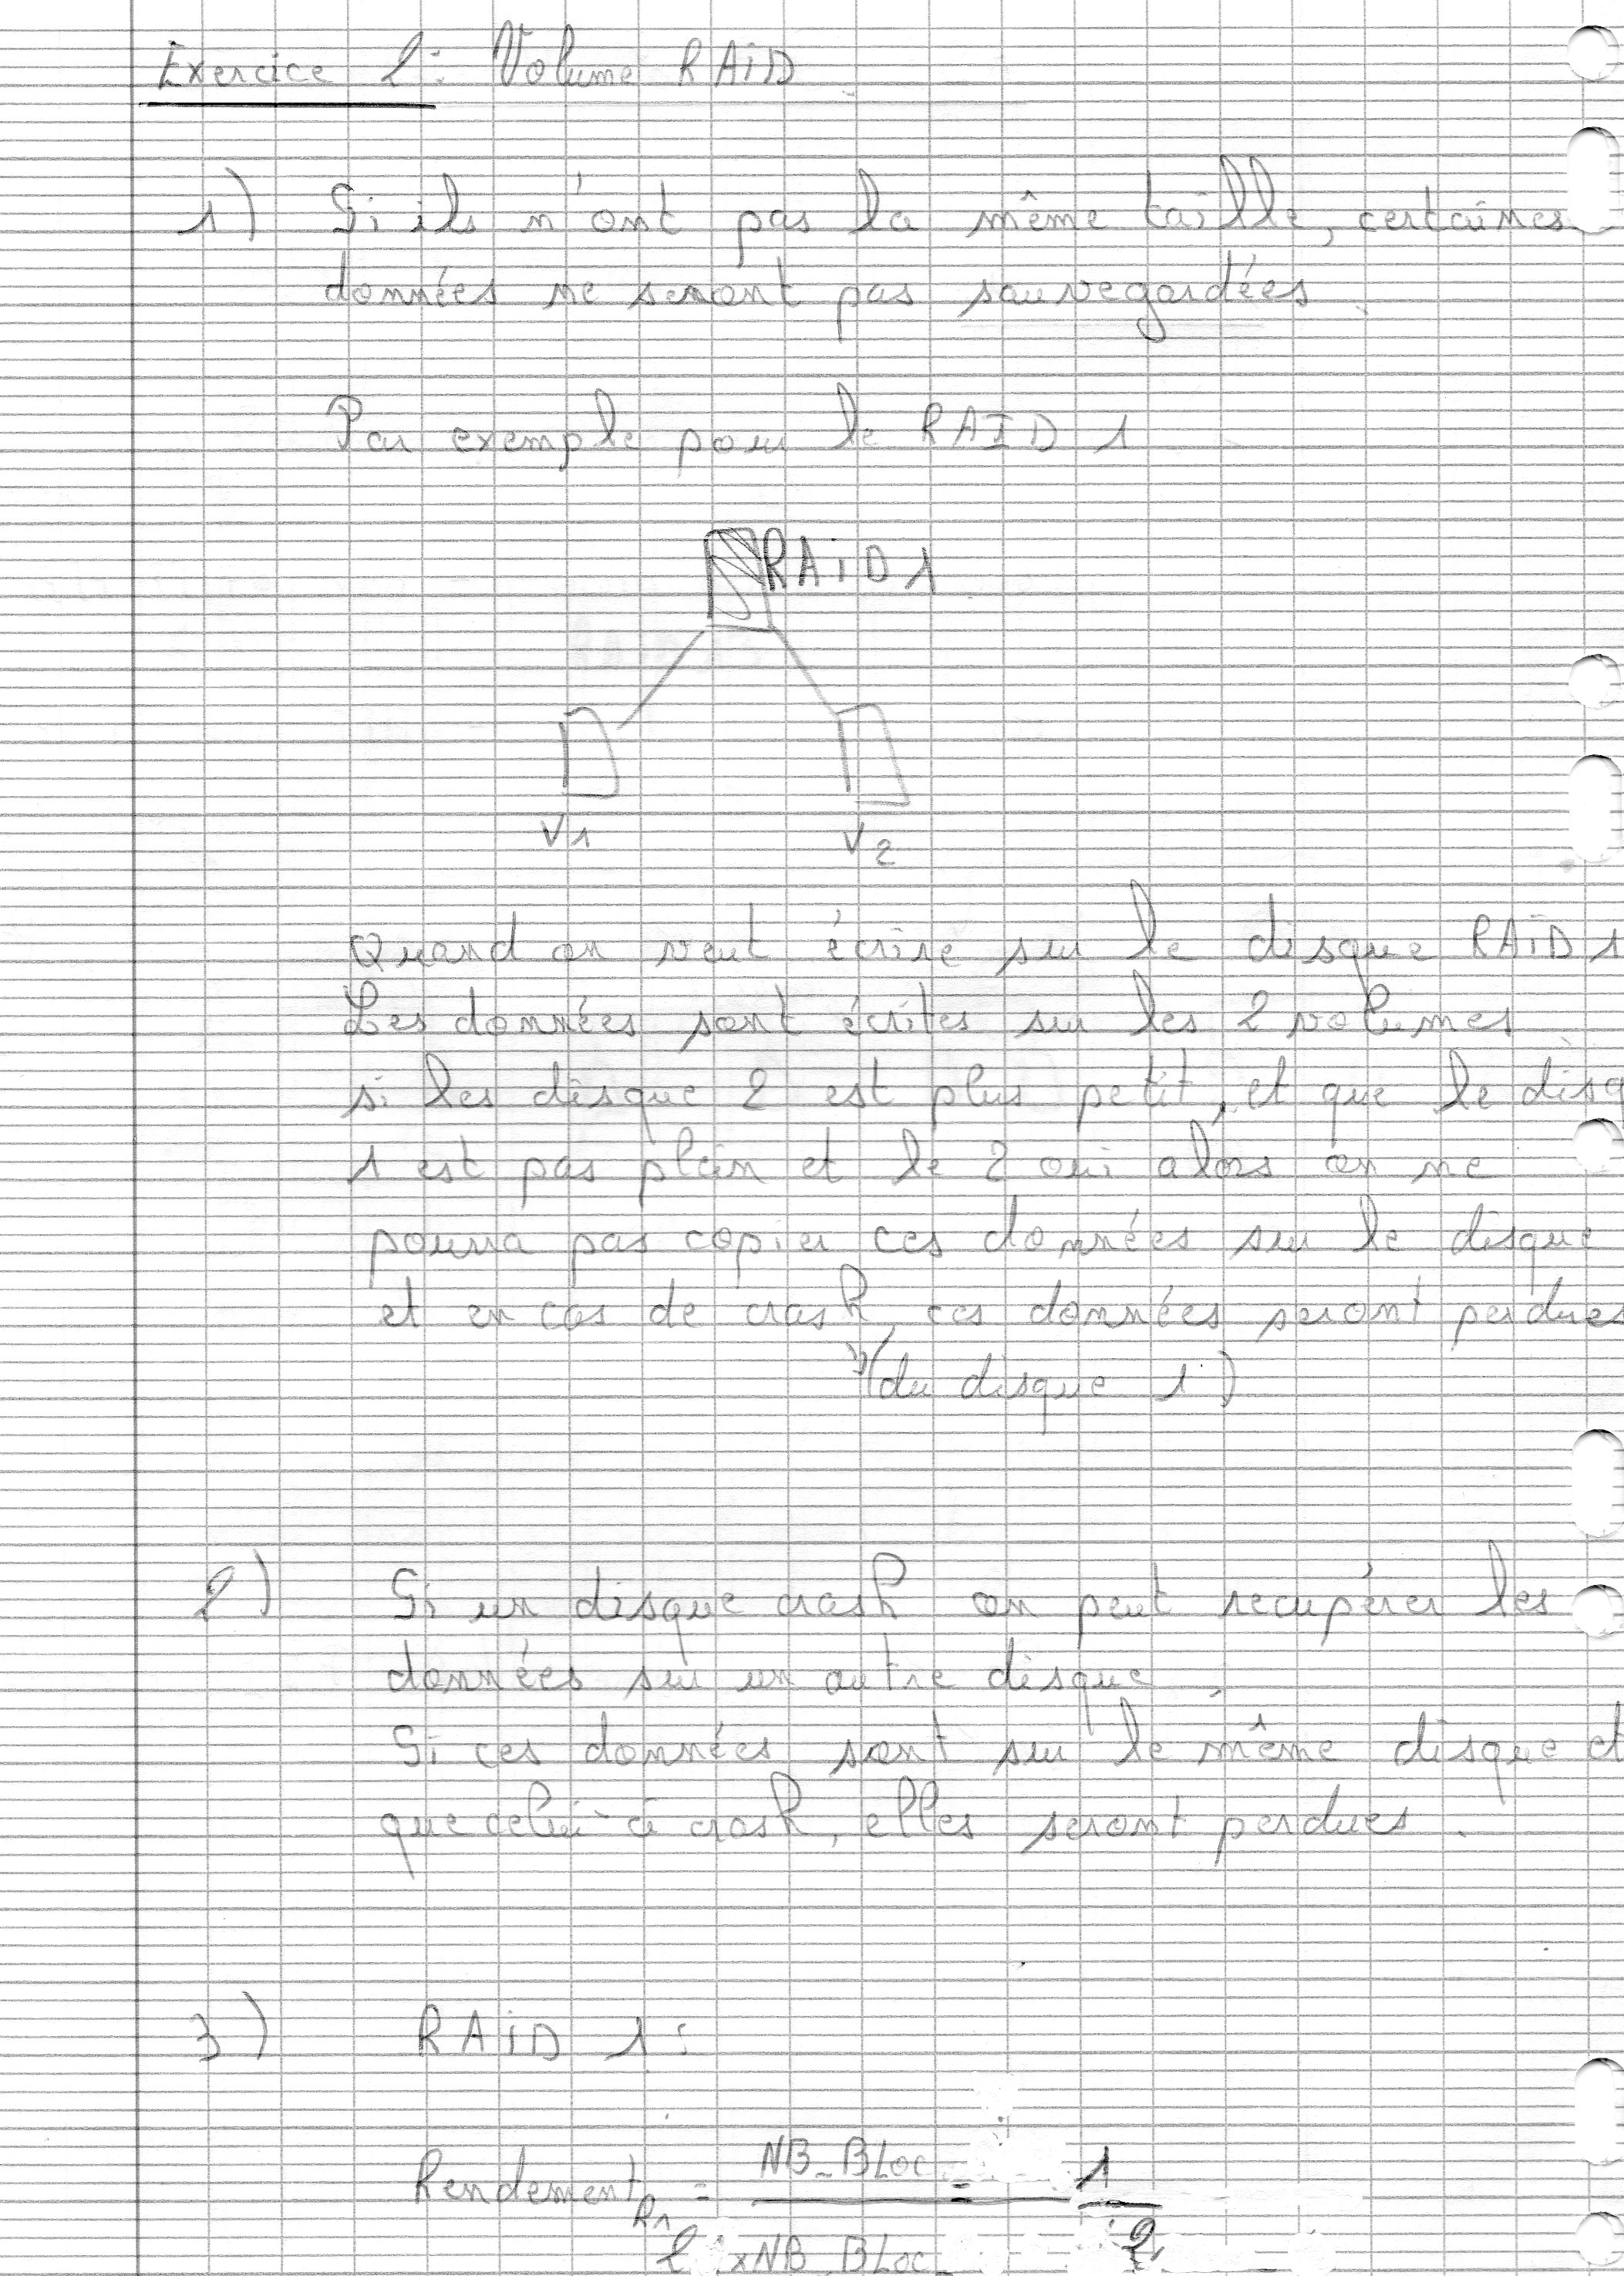 Exercice 2: Volume RAiD
1) Si ils n'ont pas la même taille, certaines
données ne seront pas sauvegardées.
Par exemple pour le RAID 1
RAiD 1
V1
V2
Quand on veut écrire sur le disque RAiD 1
Les données sont écrites sur les 2 volumes
si les disque 2 est plus petit, et que le disq
1 est pas plein et le 2 oui alors on ne
pourra pas copier ces données sur le disque
et en cas de crash, ces données seront perdues
(du disque 1)
2) Si un disque crash on peut recupérer les
données sur un autre disque.
Si ces données sont sur le même disque et
que celui-ci crash, elles seront perdues.
3) RAiD 1:
Rendement R1 = NB_BLOC = 1
2 x NB_BLOC 2